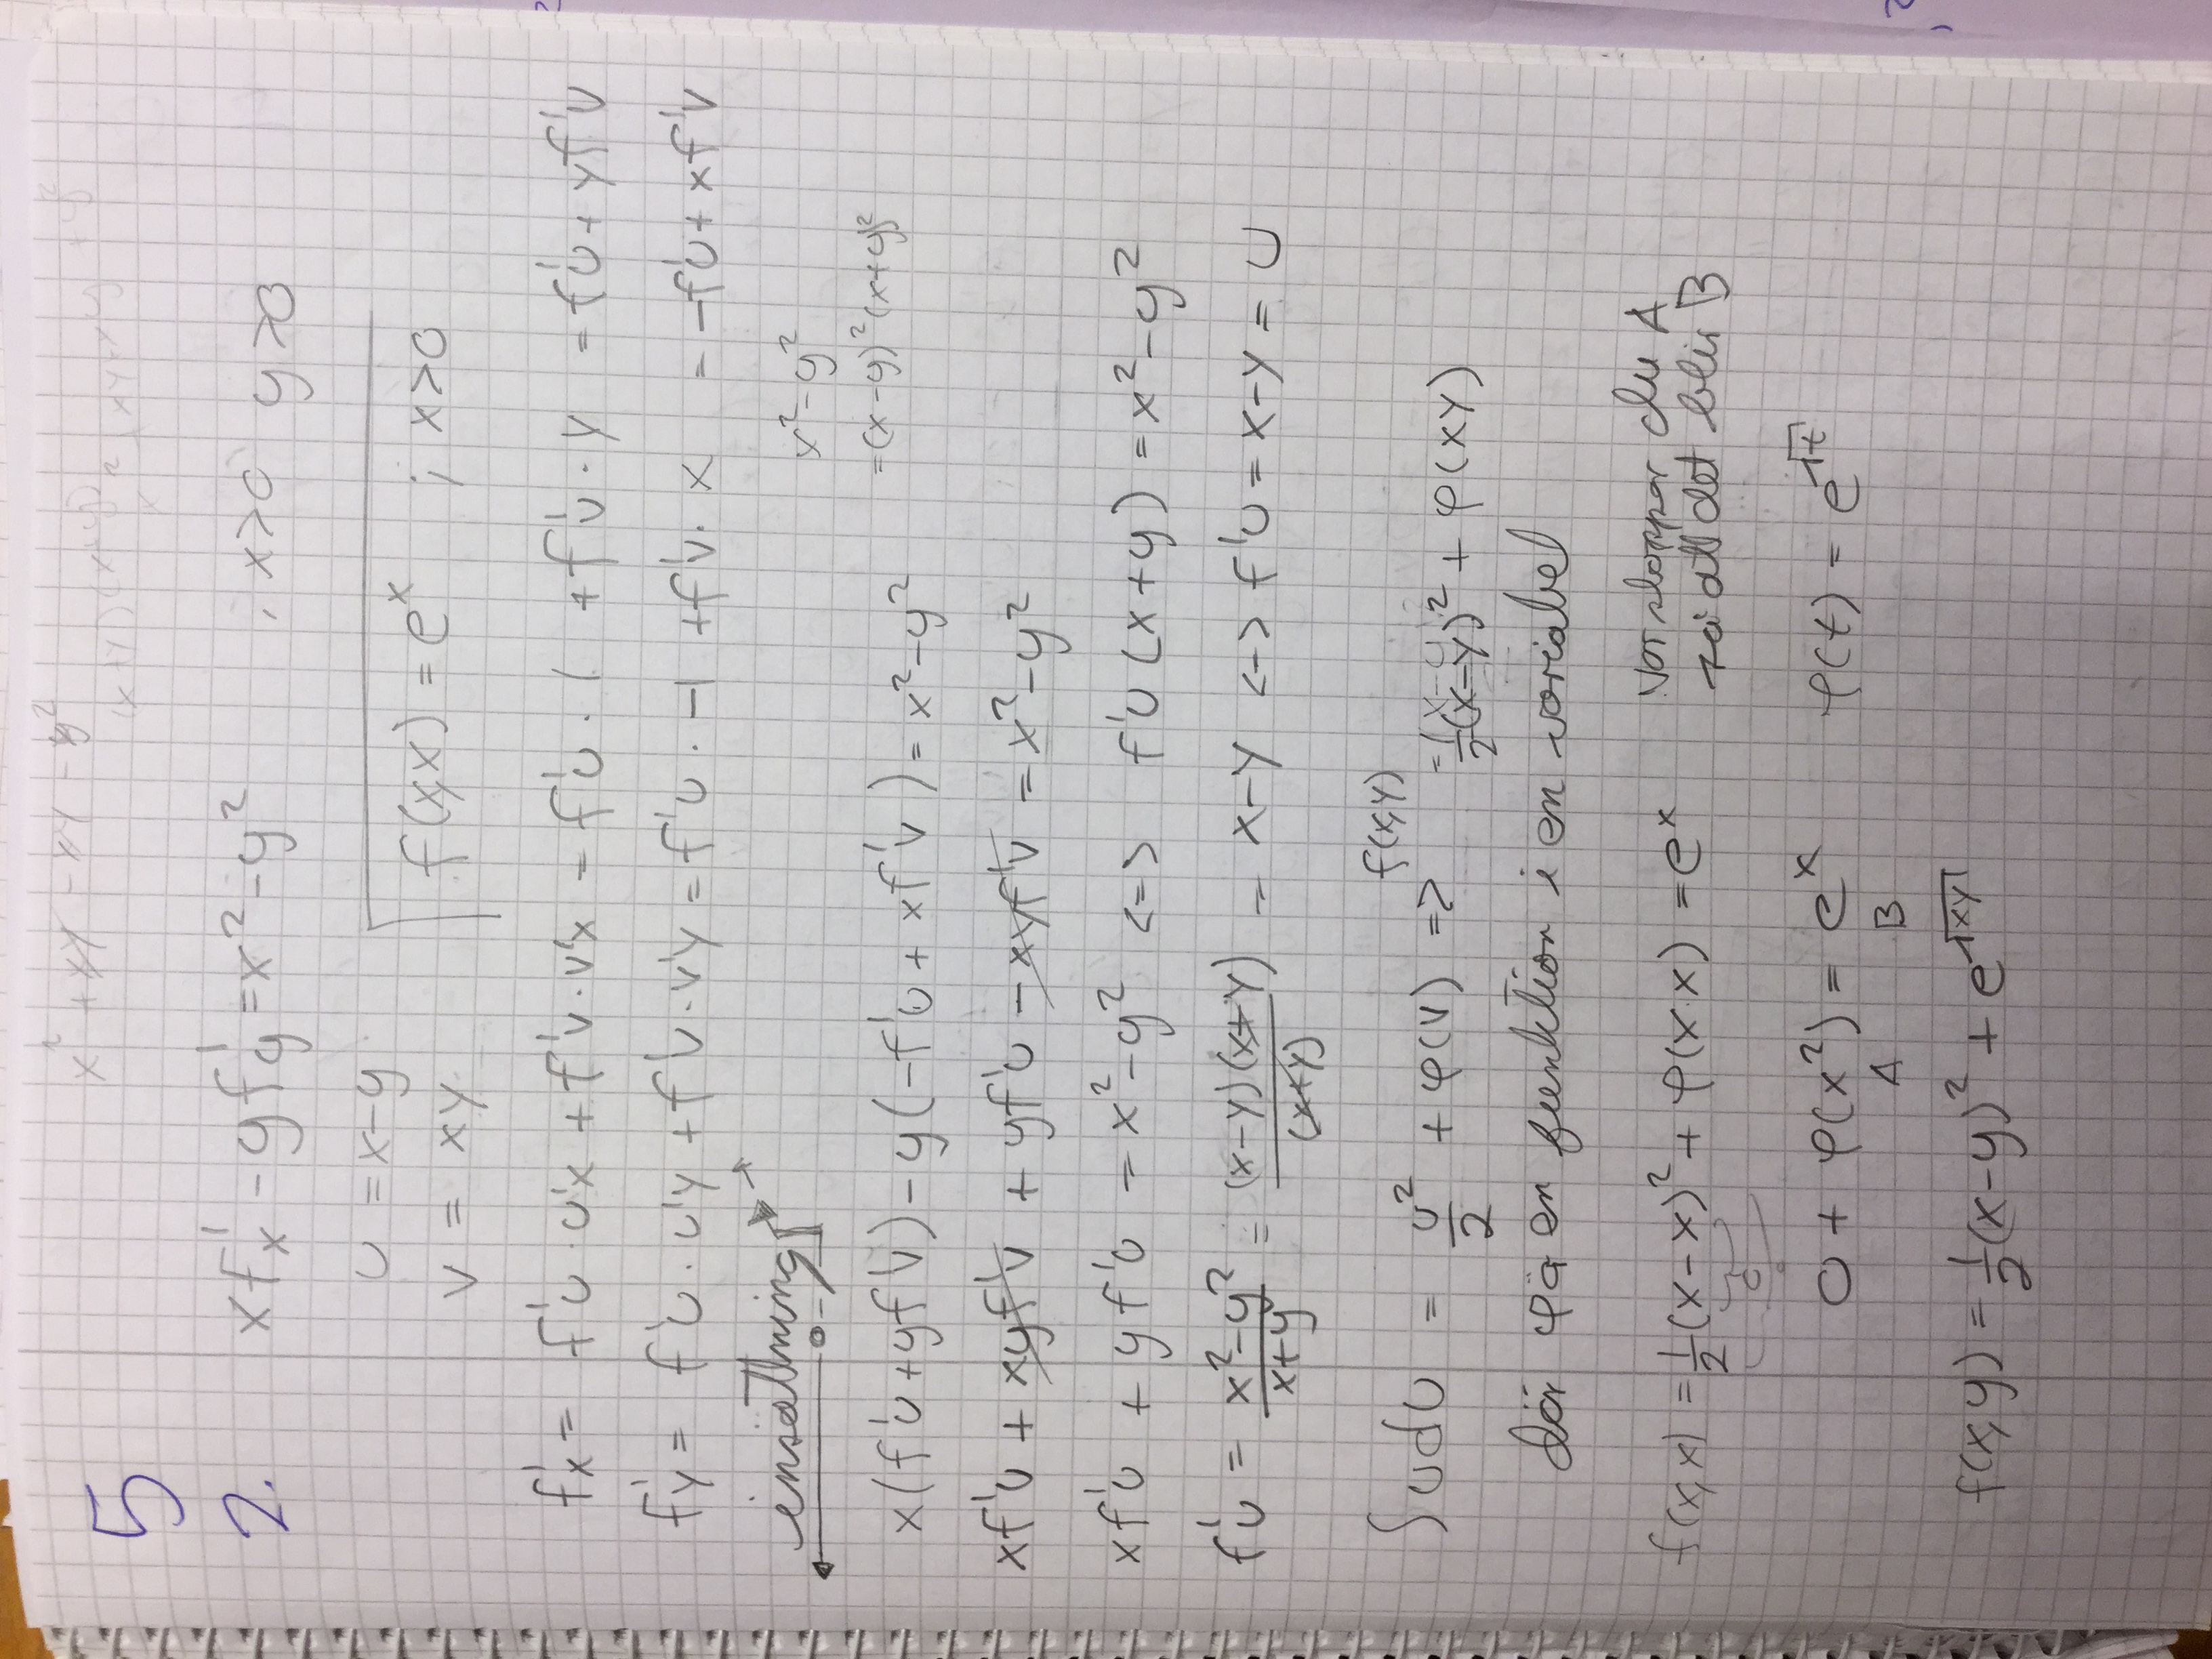 x² + xy - xy - y²
(x+y)(x+y) x² + xy + xy + y²
5
2. xf'x - yf'y = x² - y² , x>0 y>0
u = x-y
v = xy
f(x,x) = eˣ ; x>0
f'x = f'u · u'x + f'v · v'x = f'u · 1 + f'v · y = f'u + yf'v
f'y = f'u · u'y + f'v · v'y = f'u · -1 + f'v · x = -f'u + xf'v
insättning
x² - y²
= (x-y)² (x+y)²
x(f'u + yf'v) - y(-f'u + xf'v) = x² - y²
xf'u + xyf'v + yf'u - xyf'v = x² - y²
xf'u + yf'u = x² - y² <=> f'u (x+y) = x² - y²
f'u = (x² - y²)/(x+y) = (x-y)(x+y)/(x+y) = x-y <=> f'u = x-y = u
∫udu = u²/2 + φ(v) => f(x,y) = 1/2(x-y)² + φ(xy)
där φ ä en funktion i en variabel
f(x,x) = 1/2(x-x)² + φ(x·x) = eˣ
0
Vor stoppar du A
så att det blir B
0 + φ(x²) = eˣ φ(t) = e^√t
A B
f(x,y) = 1/2(x-y)² + e^√xy